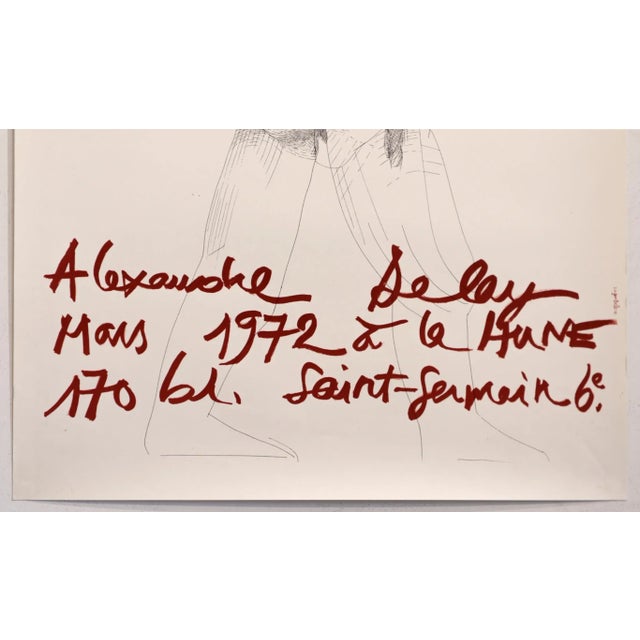 Alexandre Delay
Mars 1972 à la HUNE
170 bd. Saint-Germain 6e.